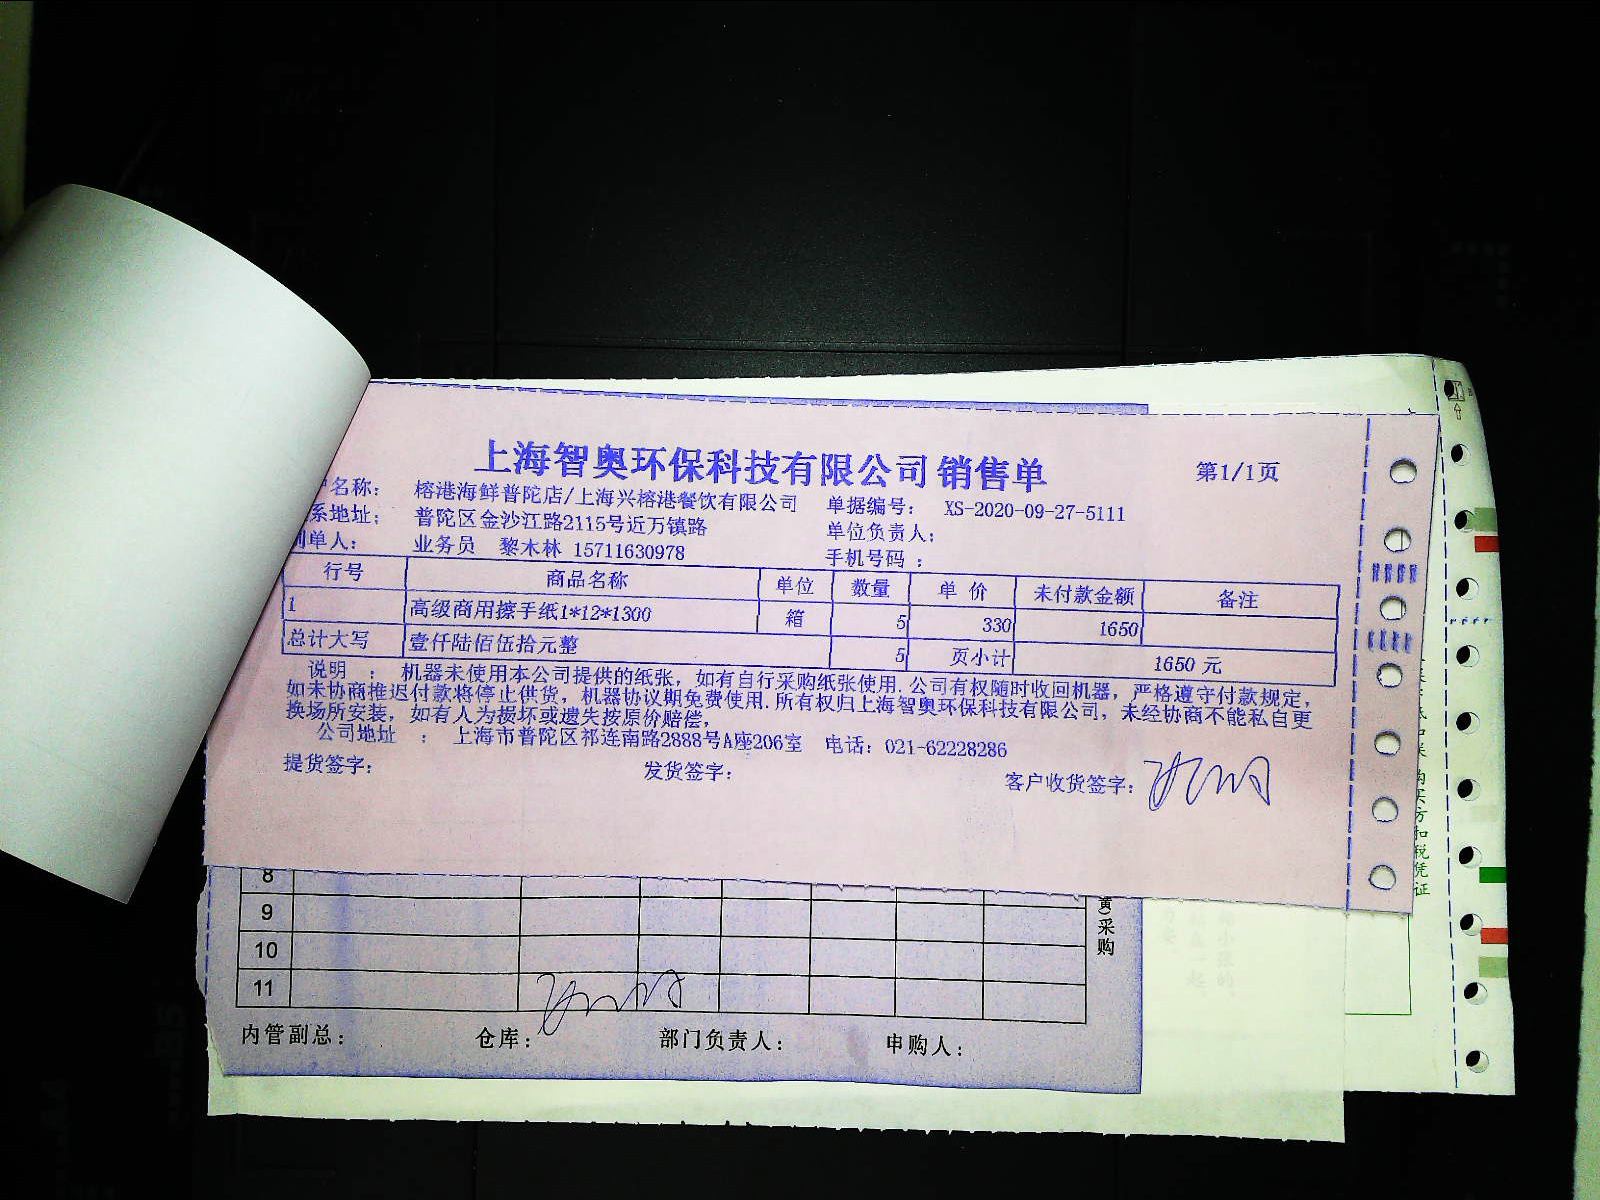 上海智奥环保科技有限公司 销售单 第1/1页
名称： 榕港海鲜普陀店/上海兴榕港餐饮有限公司 单据编号： XS-2020-09-27-5111
系地址； 普陀区金沙江路2115号近万镇路 单位负责人；
制单人： 业务员 黎木林 15711630978 手机号码：
行号 商品名称 单位 数量 单 价 未付款金额 备注
1 高级商用擦手纸1*12*1300 箱 5 330 1650
总计大写 壹仟陆佰伍拾元整 5 页小计 1650 元
说明 ： 机器未使用本公司提供的纸张，如有自行采购纸张使用.公司有权随时收回机器，严格遵守付款规定，
如未协商推迟付款将停止供货，机器协议期免费使用.所有权归上海智奥环保科技有限公司，未经协商不能私自更
换场所安装，如有人为损坏或遗失按原价赔偿，
公司地址 ： 上海市普陀区祁连南路2888号A座206室 电话：021-62228286
提货签字： 发货签字： 客户收货签字：
8
9
10
11
采购
内管副总： 仓库： 部门负责人： 申购人：
购买方扣税凭证